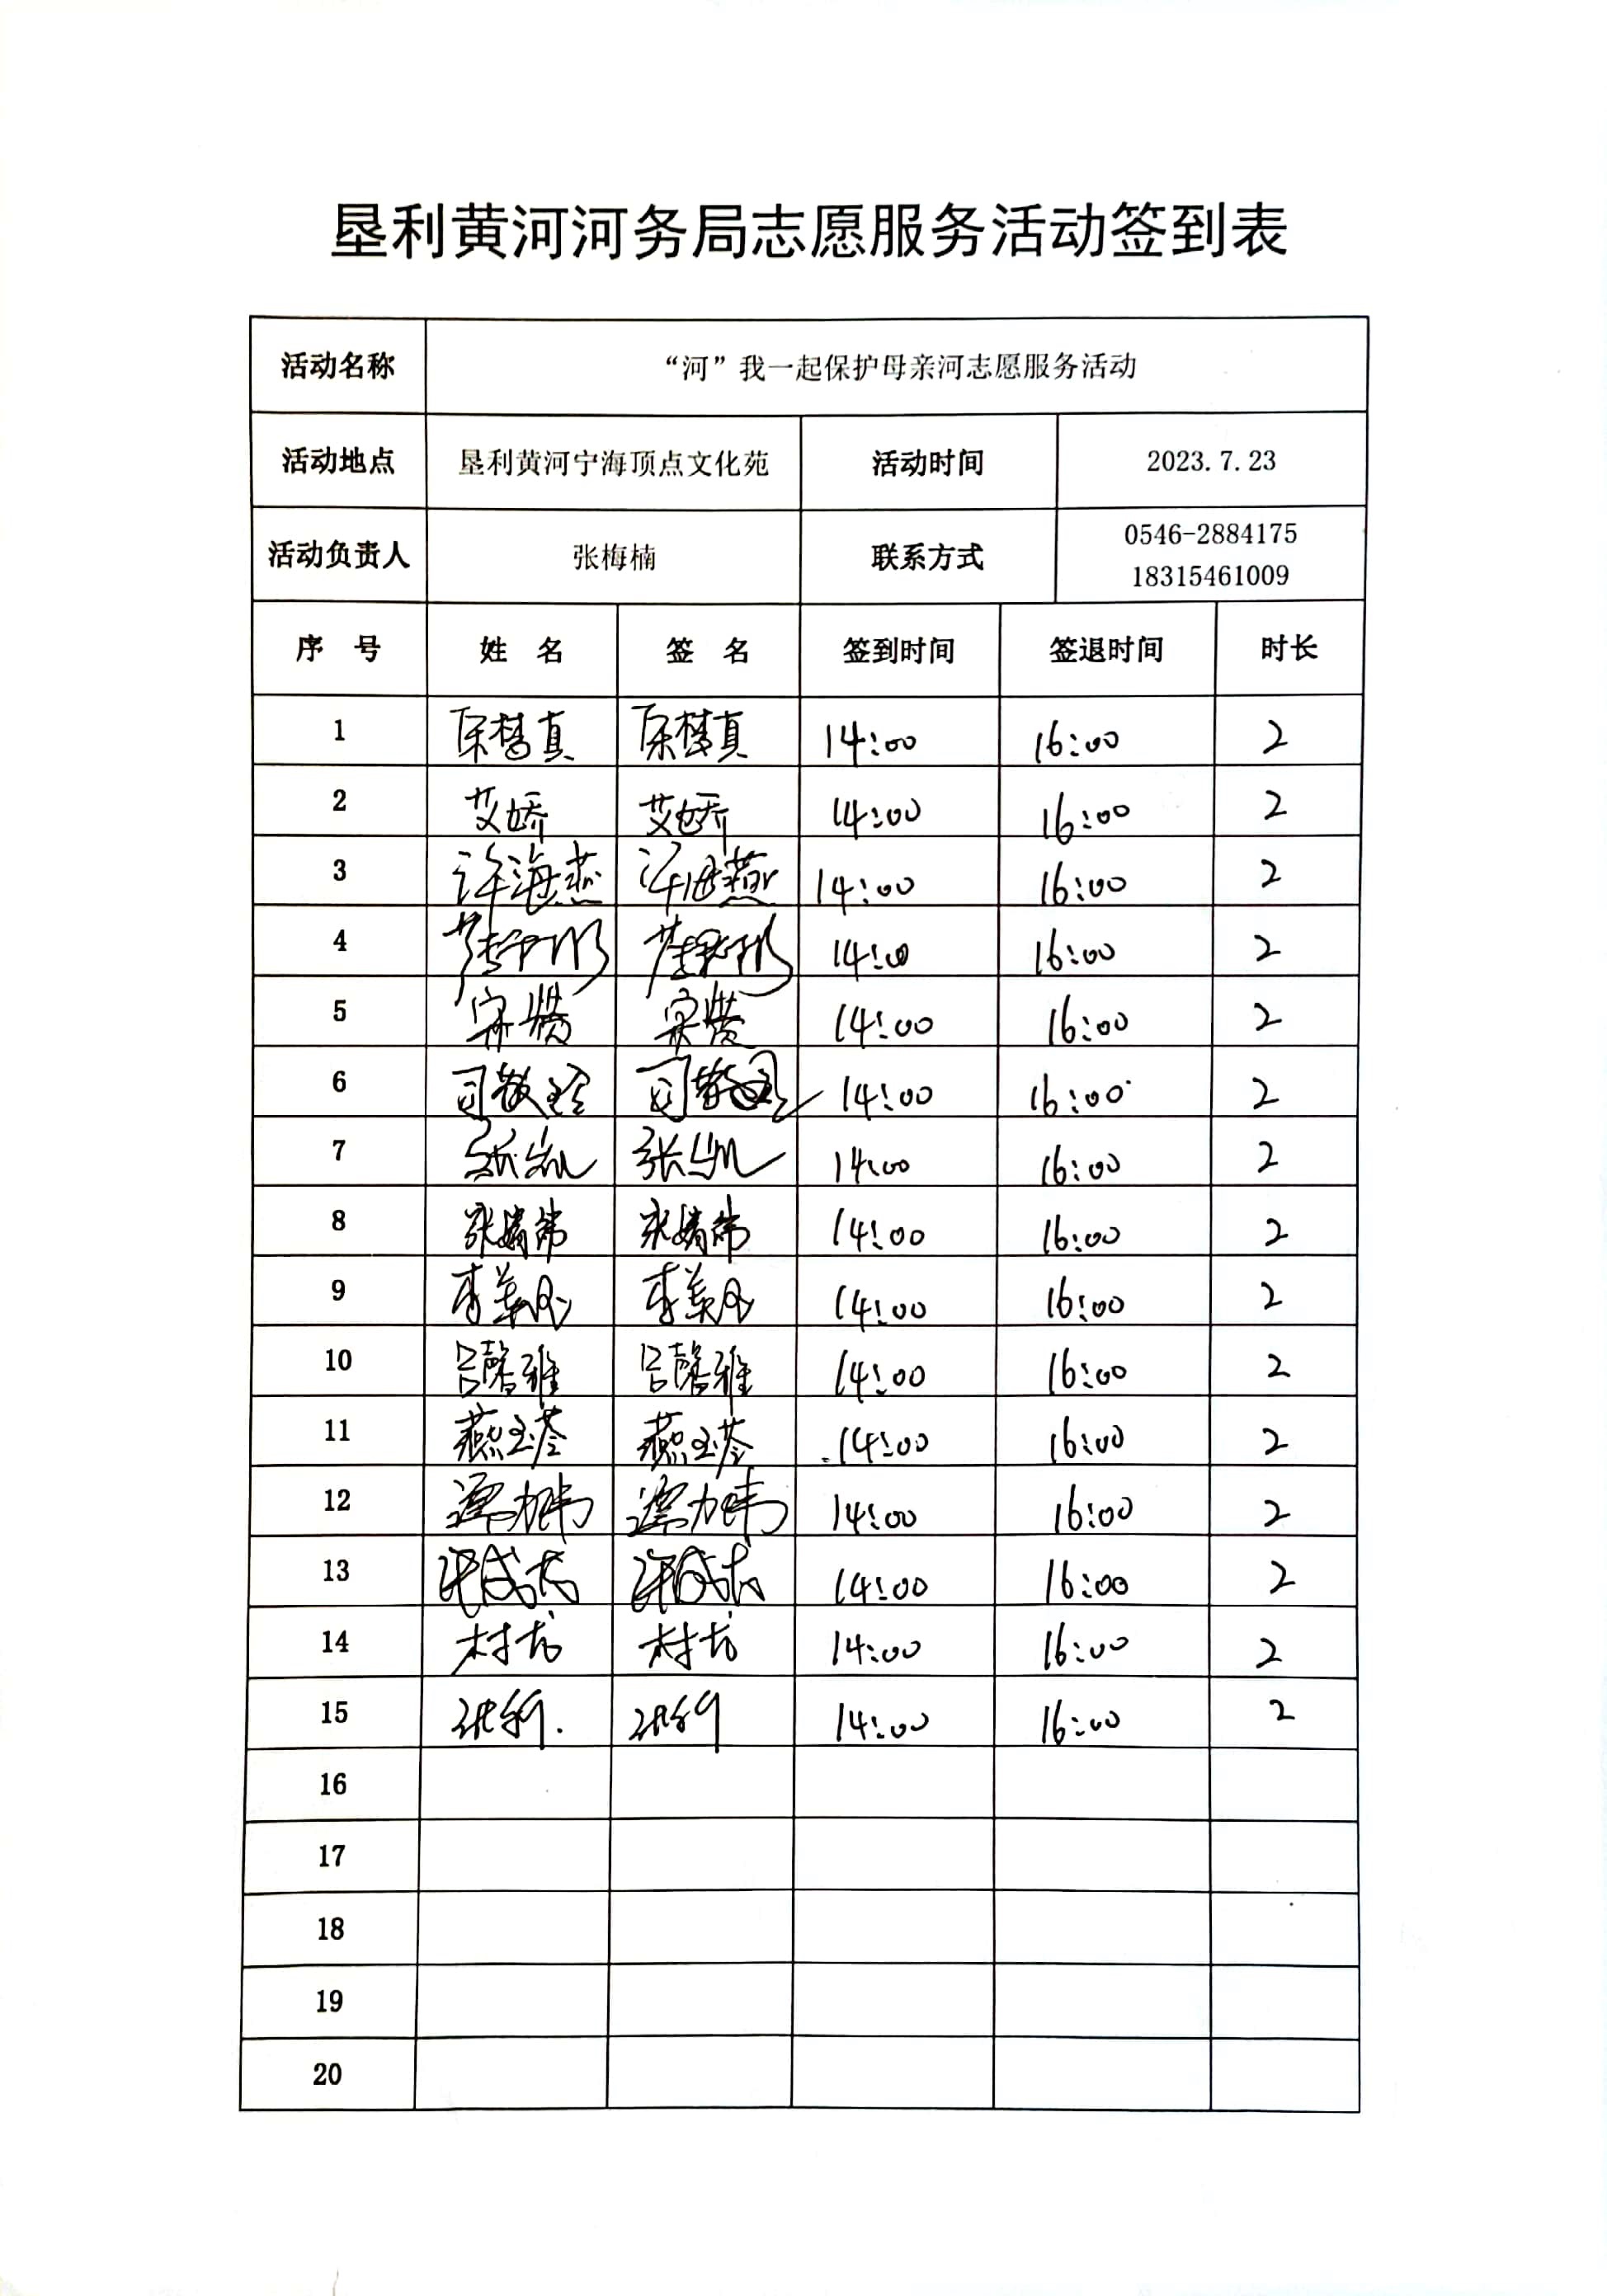 垦利黄河河务局志愿服务活动签到表
活动名称 “河”我一起保护母亲河志愿服务活动
活动地点 垦利黄河宁海顶点文化苑 活动时间 2023.7.23
活动负责人 张梅楠 联系方式 0546-2884175
18315461009
序 号 姓 名 签 名 签到时间 签退时间 时长
1 14:00 16:00 2
2 艾娇 艾娇 14:00 16:00 2
3 许海燕 许海燕 14:00 16:00 2
4 14:00 16:00 2
5 14:00 16:00 2
6 14:00 16:00 2
7 张凯 张凯 14:00 16:00 2
8 张婧韩 张婧韩 14:00 16:00 2
9 李美凤 李美凤 14:00 16:00 2
10 吕馨雅 吕馨雅 14:00 16:00 2
11 燕玉苓 燕玉苓 14:00 16:00 2
12 14:00 16:00 2
13 14:00 16:00 2
14 14:00 16:00 2
15 14:00 16:00 2
16
17
18
19
20